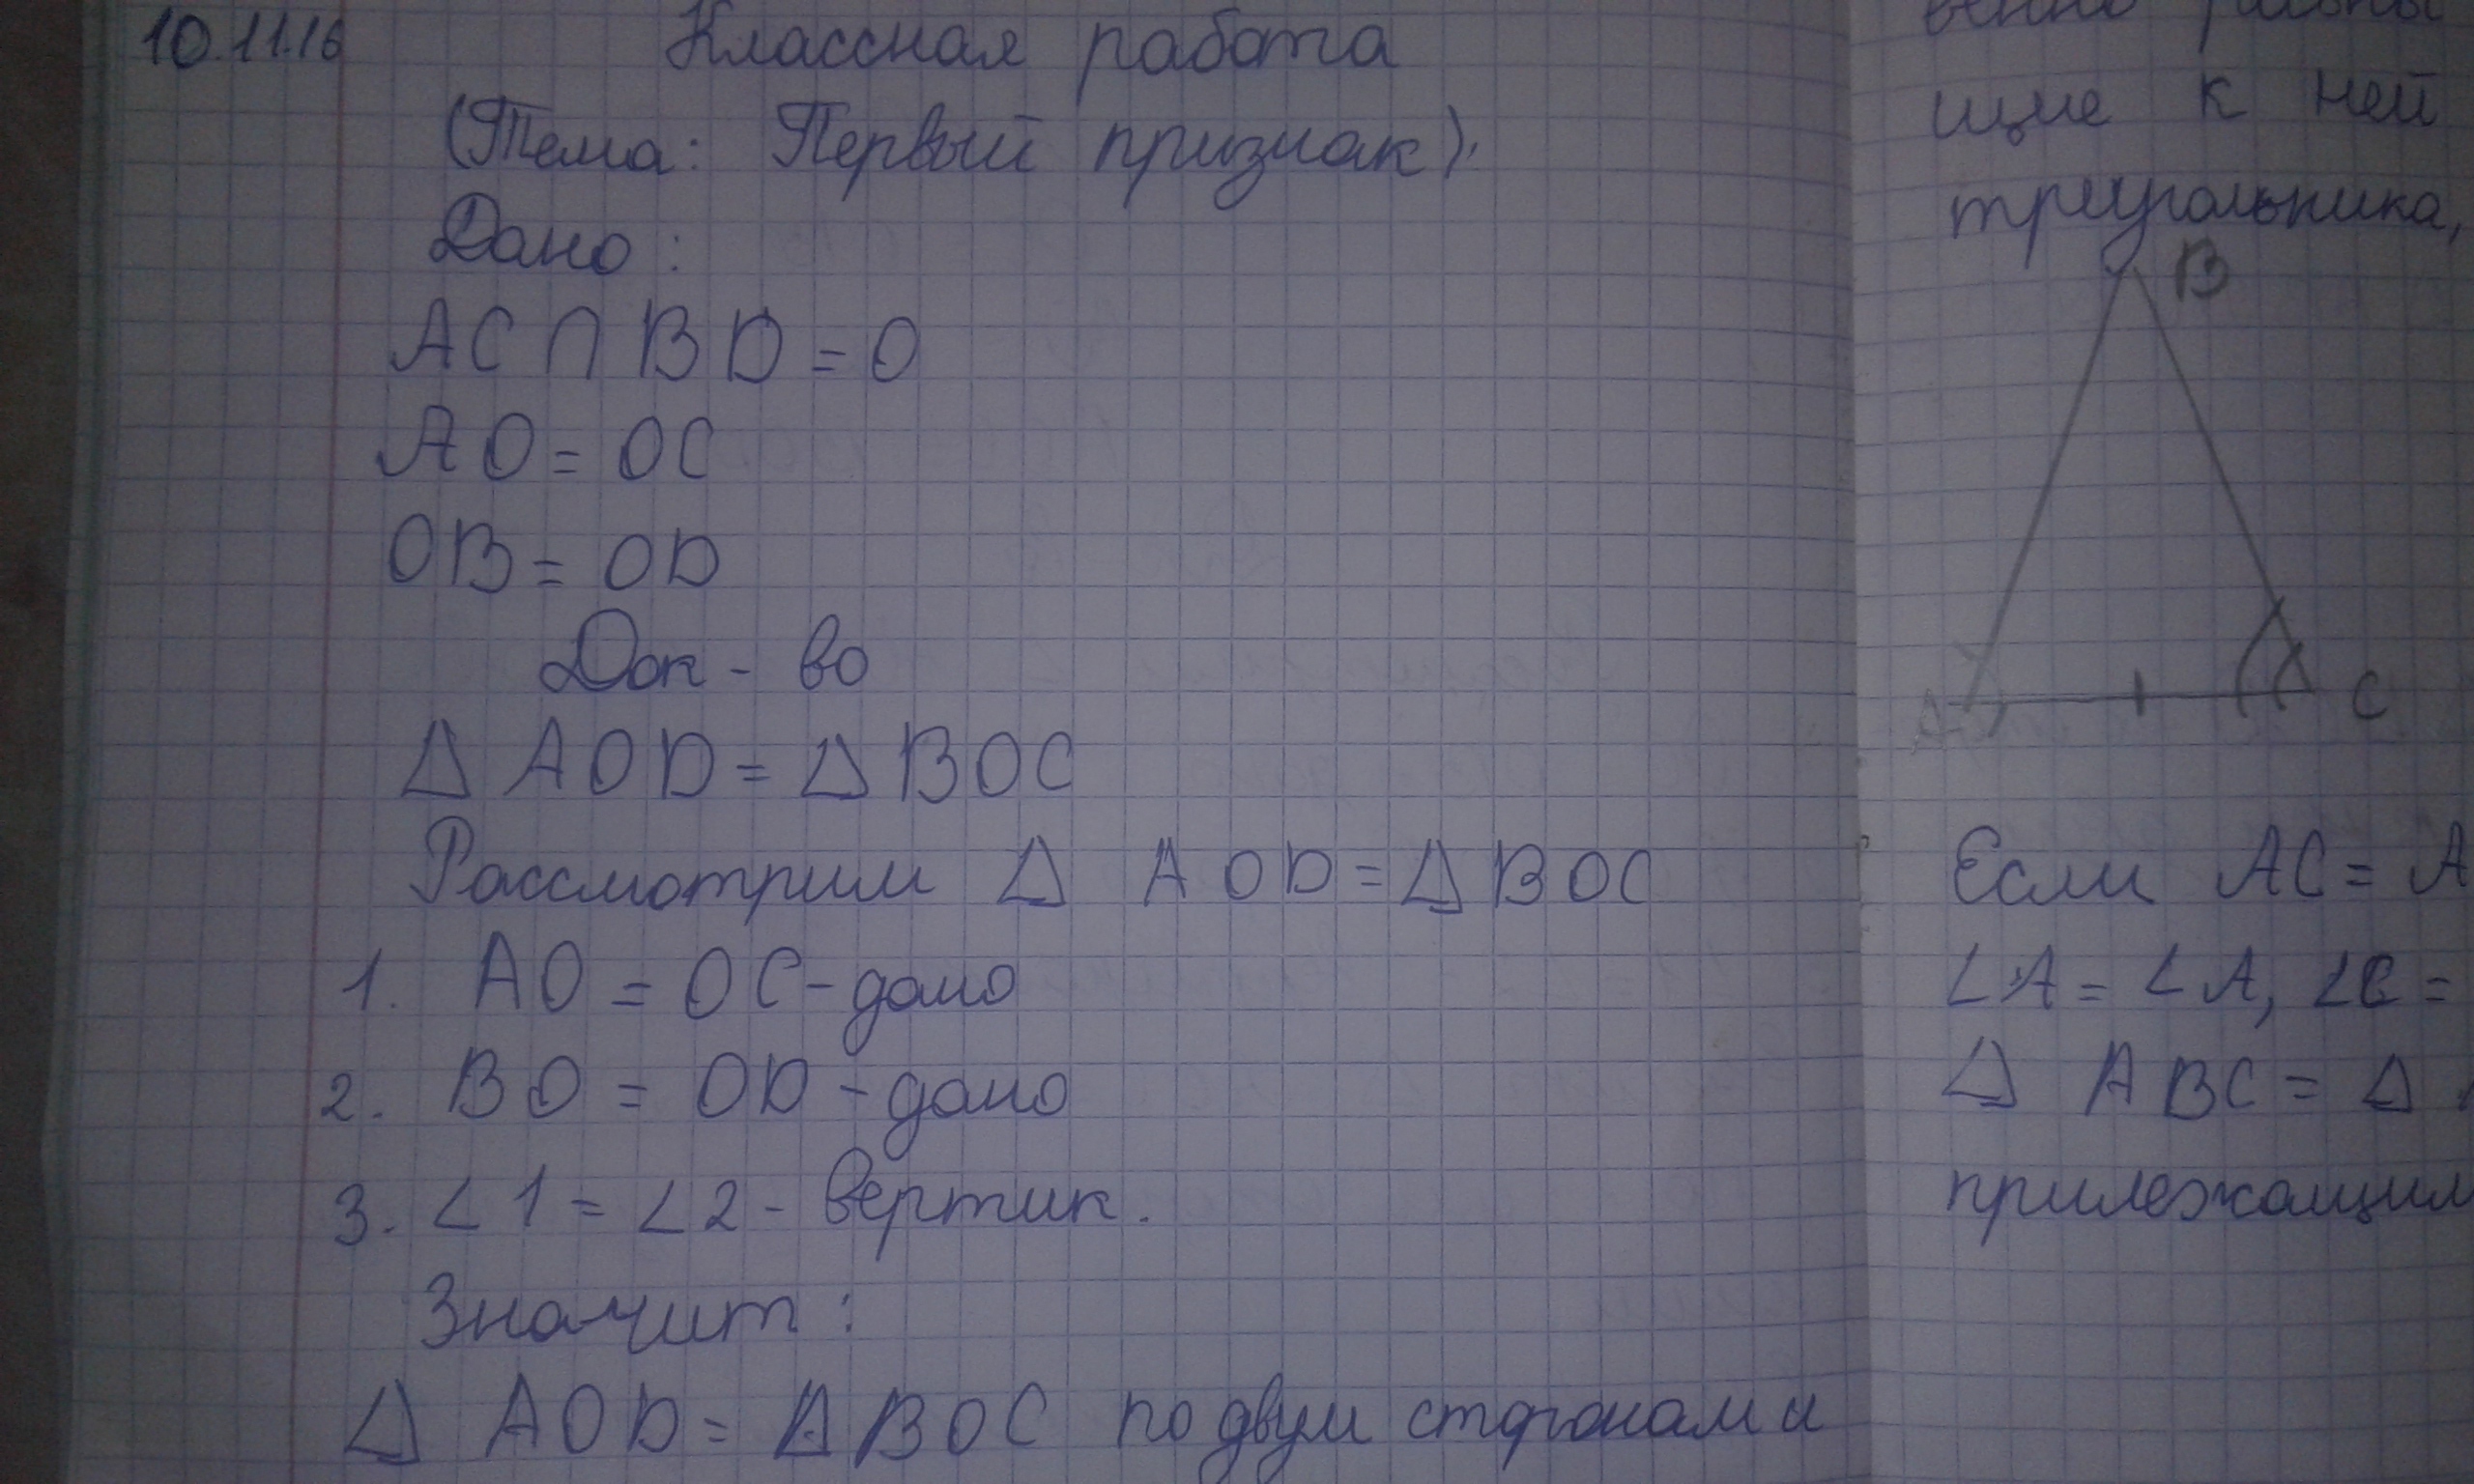 10.11.16 Классная работа
(Тема: Первый признак).
Дано:
AC ∩ BD = O
AO = OC
OB = OD
Док-во
Δ AOD = Δ BOC
Рассмотрим Δ AOD = Δ BOC
1. AO = OC - дано
2. BO = OD - дано
3. ∠1 = ∠2 - вертик.
Значит:
Δ AOD = Δ BOC по двум сторонам и
щие к ней
треугольника,
B
A
C
Если AC = A
∠A = ∠A, ∠C =
Δ ABC = Δ
прилежащим